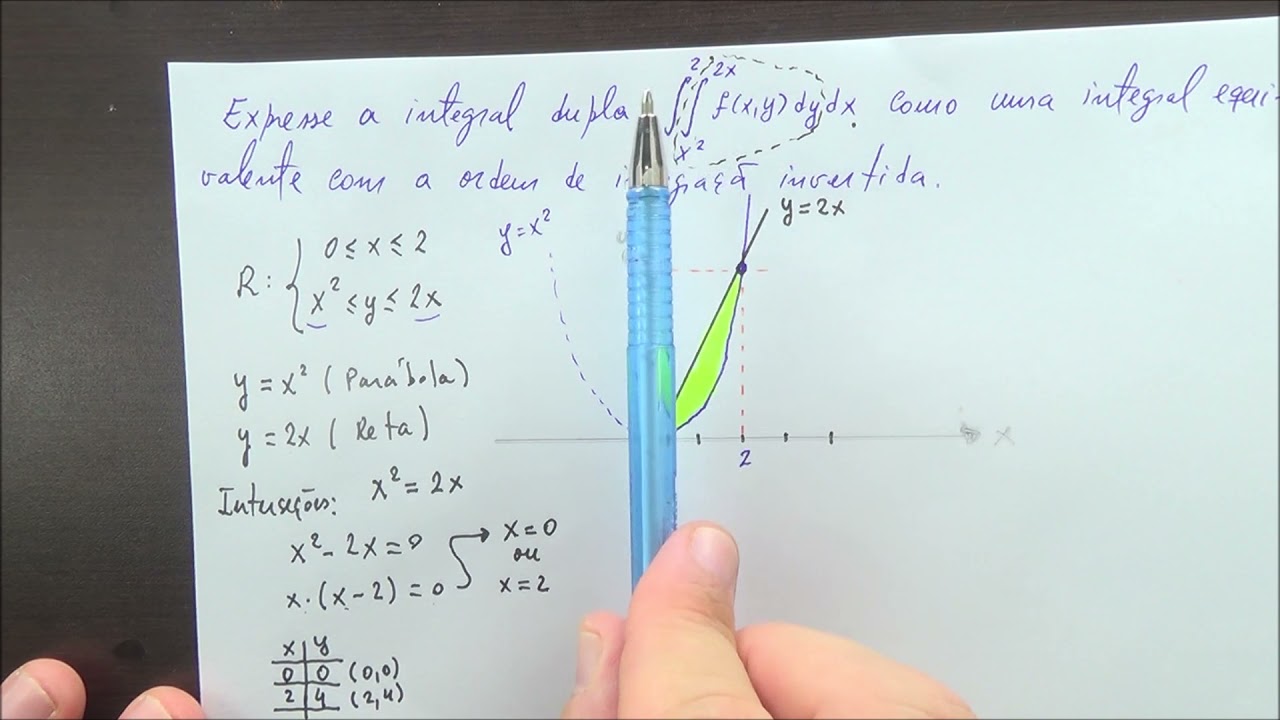 Expresse a integral dupla ∫∫ 2 2x x² f(x,y) dy dx como uma integral equi-
valente com a ordem de invertida.
R: { 0 ≤ x ≤ 2
x² ≤ y ≤ 2x
y = x² (Parábola)
y = 2x (Reta)
x² = 2x
x² - 2x = 0
x · (x - 2) = 0
x = 0
ou
x = 2
x | y
0 | 0 (0,0)
2 | 4 (2,4)
y = x²
y = 2x
2
x